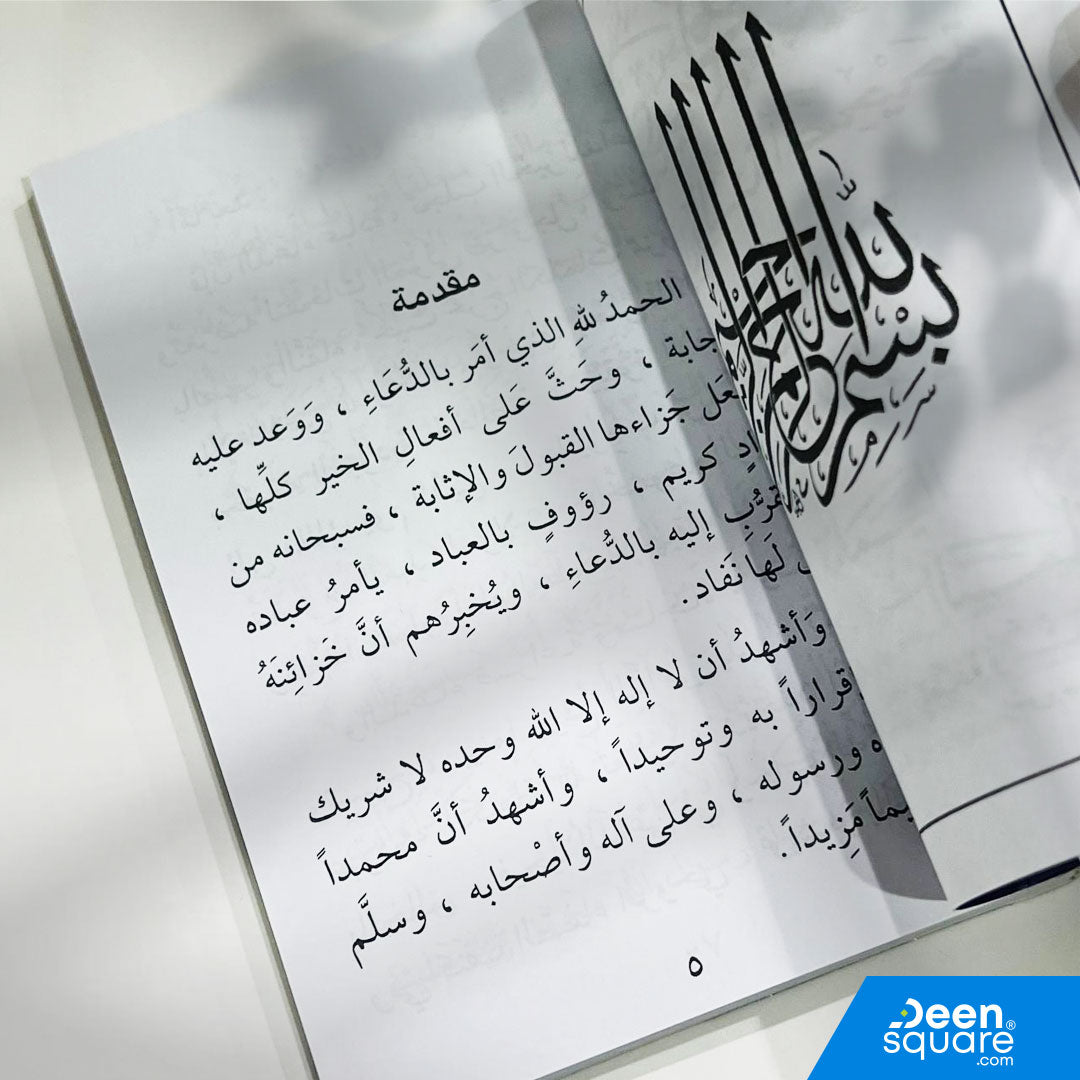 بسم الله الرحمن الرحيم
مقدمة
الحمدُ للهِ الذي أمَر بالدُّعَاءِ ، وَوَعد عليه
جابة ، وحَثَّ عَلى أفعالِ الخير كلِّها ،
عَل جَزاءها القبولَ والإثابة ، فسبحانه من
ادٍ كريم ، رؤوفٍ بالعباد ، يأمرُ عباده
قرُّبِ إليه بالدُّعاءِ ، ويُخبِرُهم أنَّ خَزائِنَهُ
لَها نَفاد.
وَأشهدُ أن لا إله إلا الله وحده لا شريك
قراراً به وتوحيداً ، وأشهدُ أنَّ محمداً
ه ورسوله ، وعلى آله وأصْحابه ، وسلَّم
يماً مَزِيداً.
٥
Deen
square®
.com